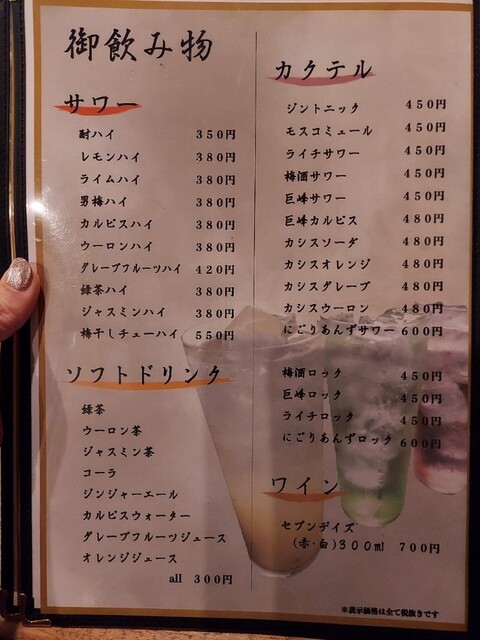 御飲み物
サワー
酎ハイ 350円
レモンハイ 380円
ライムハイ 380円
男梅ハイ 380円
カルピスハイ 380円
ウーロンハイ 380円
グレープフルーツハイ 420円
緑茶ハイ 380円
ジャスミンハイ 380円
梅干しチューハイ 550円
ソフトドリンク
緑茶
ウーロン茶
ジャスミン茶
コーラ
ジンジャーエール
カルピスウォーター
グレープフルーツジュース
オレンジジュース
all 300円
カクテル
ジントニック 450円
モスコミュール 450円
ライチサワー 450円
梅酒サワー 450円
巨峰サワー 450円
巨峰カルピス 480円
カシスソーダ 480円
カシスオレンジ 480円
カシスグレープ 480円
カシスウーロン 480円
にごりあんずサワー 600円
梅酒ロック 450円
巨峰ロック 450円
ライチロック 450円
にごりあんずロック 600円
ワイン
セブンデイズ
(赤·白)300ml 700円
※表示価格は全て税抜きです